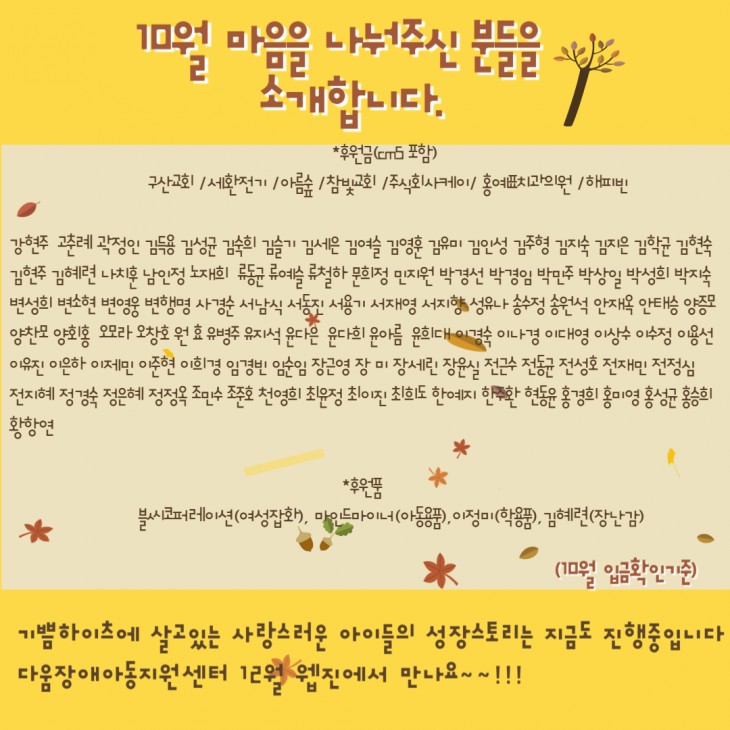 10월 마음을 나눠주신 분들을
소개합니다.
*후원금(cms 포함)
구산교회 /세환전기 /아름숲 /참빛교회 /주식회사케이/ 홍여표치과의원 /해피빈
강현주 고춘례 곽정인 김득용 김성균 김숙희 김슬기 김세은 김예슬 김영훈 김유미 김인성 김주형 김지숙 김지은 김학균 김현숙
김현주 김혜련 나치훈 남인정 노재희 류동균 류예슬 류철하 문희정 민지원 박경선 박경임 박민주 박상일 박성희 박지숙
변성희 변소현 변영웅 변해명 사경순 서남식 서동진 서용기 서재영 서지향 성유나 송수정 송원석 안재옥 안태승 양종모
양찬모 양회홍 오모라 오창호 원 효 유병주 유지석 윤다은 윤다희 윤아름 윤희대 이경숙 이나경 이대영 이상수 이수정 이용선
이유진 이은하 이제민 이준현 이희경 임경빈 임순임 장근영 장 미 장세린 장윤실 전근수 전동균 전성호 전재민 전정심
전지혜 정경숙 정은혜 정정옥 조민수 조준호 천영희 최윤정 최이진 최희도 한예지 현동윤 홍경희 홍미영 홍성균 홍승희
황항연
*후원품
블씨코퍼레이션(여성잡화), 마인드마이너(아동용품),이정미(학용품),김혜련(장난감)
(10월 입금확인기준)
기쁨하이츠에 살고있는 사랑스러운 아이들의 성장스토리는 지금도 진행중입니다
다움장애아동지원센터 12월 웹진에서 만나요~~!!!